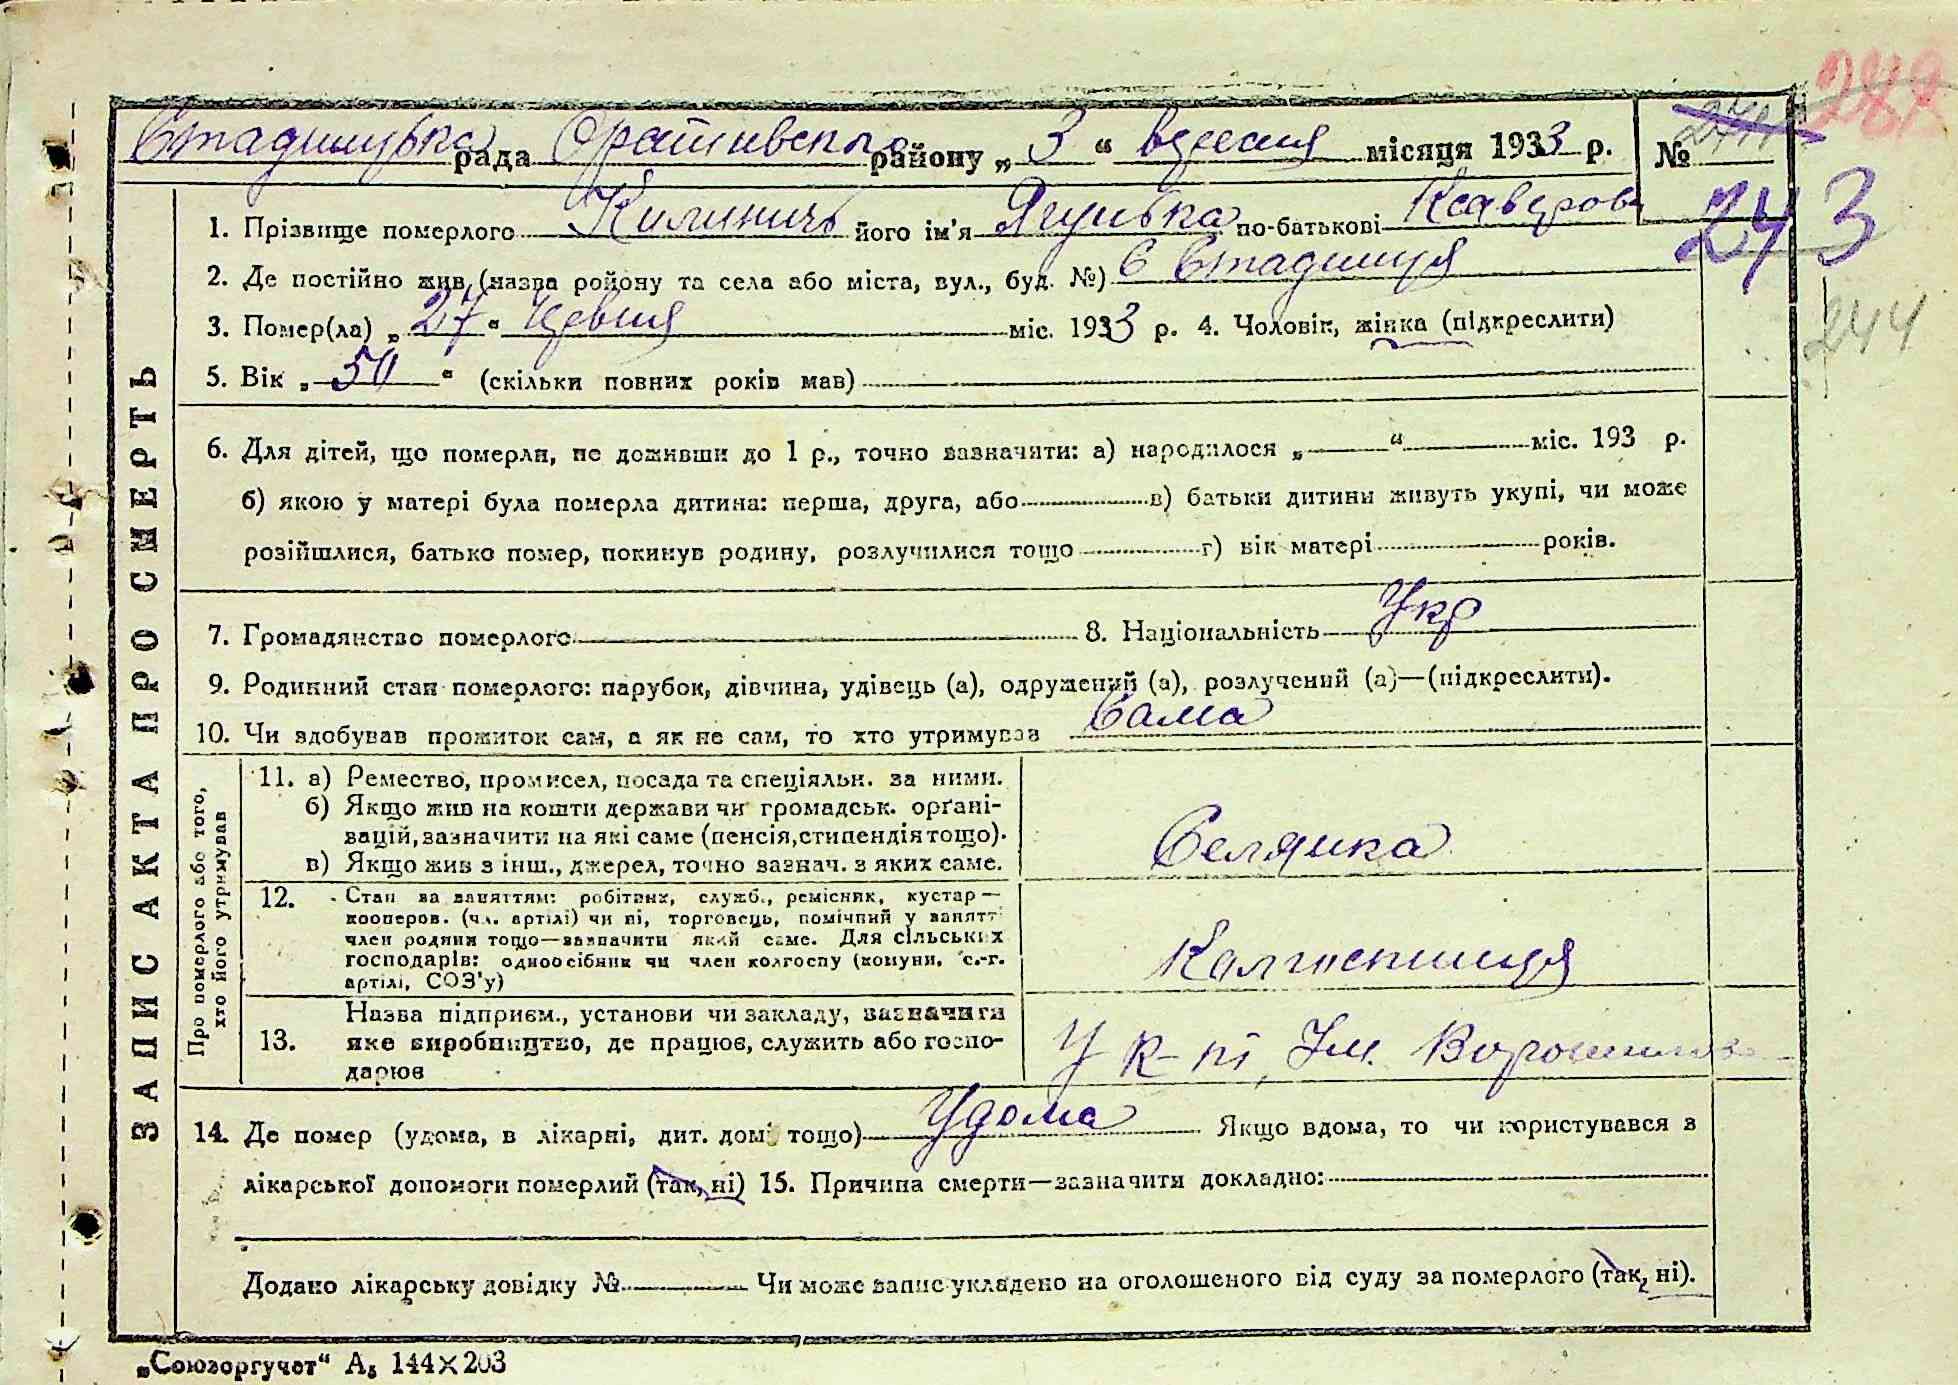 Стадницька рада Оратівського району „ 3 “ вересня місяця 1933 р. № 271 282
243
1. Прізвище померлого Килинич його ім'я Ягустка по-батькові Ксаверов
2. Де постійно жив (назва ройону та села або міста, вул., буд. №) с Стадниця
3. Помер(ла) „ 27 “ червня міс. 1933 р. 4. Чоловік, жінка (підкреслити)
244
5. Вік „ 50 “ (скільки повних років мав)
6. Для дітей, що померли, не доживши до 1 р., точно зазначити: а) народилося „ “ міс. 193 р.
б) якою у матері була померла дитина: перша, друга, або в) батьки дитини живуть укупі, чи може
розійшлися, батько помер, покинув родину, розлучилися тощо г) вік матері років.
7. Громадянство померлого 8. Національність Укр
9. Родинний стан померлого: парубок, дівчина, удівець (а), одружений (а), розлучений (а)—(підкреслити).
10. Чи здобував прожиток сам, а як не сам, то хто утримував Сама
ЗАПИС АКТА ПРО СМЕРТЬ
Про померлого або того,
хто його утримував
11. а) Ремество, промисел, посада та спеціяльн. за ними.
б) Якщо жив на кошти держави чи громадськ. орґані-
зацій, зазначити на які саме (пенсія, стипендія тощо).
в) Якщо жив з інш., джерел, точно зазнач. з яких саме.
Селянка
12. Стан за заняттям: робітник, служб., ремісник, кустар —
кооперов. (чл. артілі) чи ні, торговець, помічний у занятт
член родини тощо—зазначити який саме. Для сільських
господарів: одноосібник чи член колгоспу (комуни, с.-г.
артілі, СОЗ'у)
Колгоспниця
13. Назва підприєм., установи чи закладу, зазначити
яке виробництво, де працює, служить або госпо-
дарює
У к-пі, Ім. Ворошилова
14. Де помер (удома, в лікарні, дит. домі тощо) Удома Якщо вдома, то чи користувався з
лікарської допомоги померлий (так, ні) 15. Причина смерти—зазначити докладно:
Додано лікарську довідку № Чи може запис укладено на оголошеного від суду за померлого (так, ні).
„Союзоргучет“ А₅ 144×203